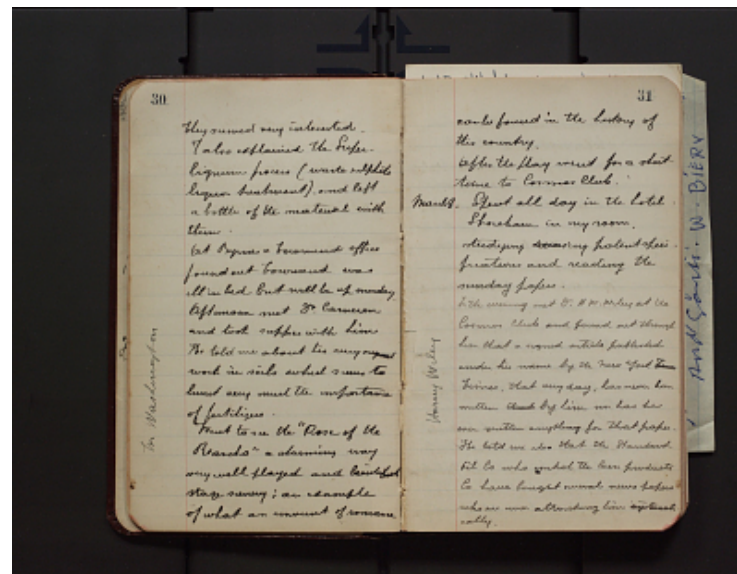 30
they seemed very interested.
I also explained the Super
Lignum process (waste sulphite
liquor treatment) and left
a bottle of the material with
them.
At Byrnes & Townsend office
found out Townsend was
ill in bed but will be up monday
Afternoon met Dr. Cameron
and took supper with him
He told me about his
work in soils which seems to
very much the importance
of fertilizers.
Went to see the "Rose of the
Rancho" a charming
very well played and
stage scenery; an example
of what an amount of romance
In Washington
31
can be found in the history of
this country.
After the play went for a short
time to Cosmos Club.
March 3. Spent all day in the hotel
Shoreham in my room,
studying patent speci-
fications and reading the
sunday papers.
In the evening met Dr. H. W. Wiley at the
Cosmos Club and found out through
him that a signed article published
under his name by the New York
Times, that very day, has never been
written by him nor has he
ever written anything for that paper.
He told me also that the Standard
Oil Co who control the Corn products
Co have bought several news papers
who are now attacking him
cally.
Harvey Wiley
W. BIERY